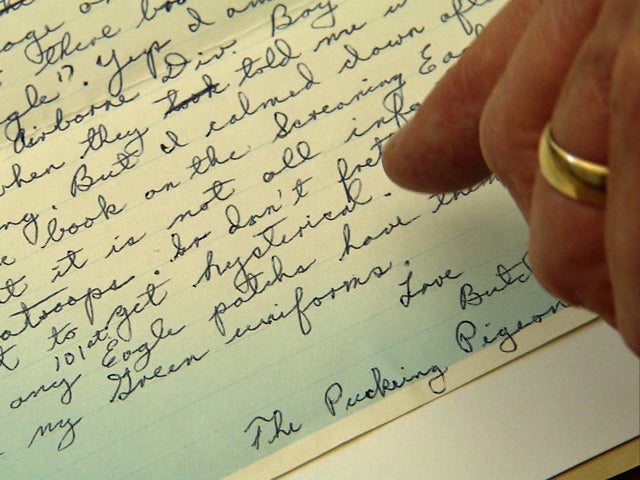 age
there
gle". Yup I am
Airborne Div. Boy
when they took told me
ng. But I calmed down after
book on the Screaming Ea
t it is not all info
atroops. So don't fret
t to get hysterical.
101st
any Eagle patchs have them
my Green uniforms.
Love
Butch
The Puckering Pigeon